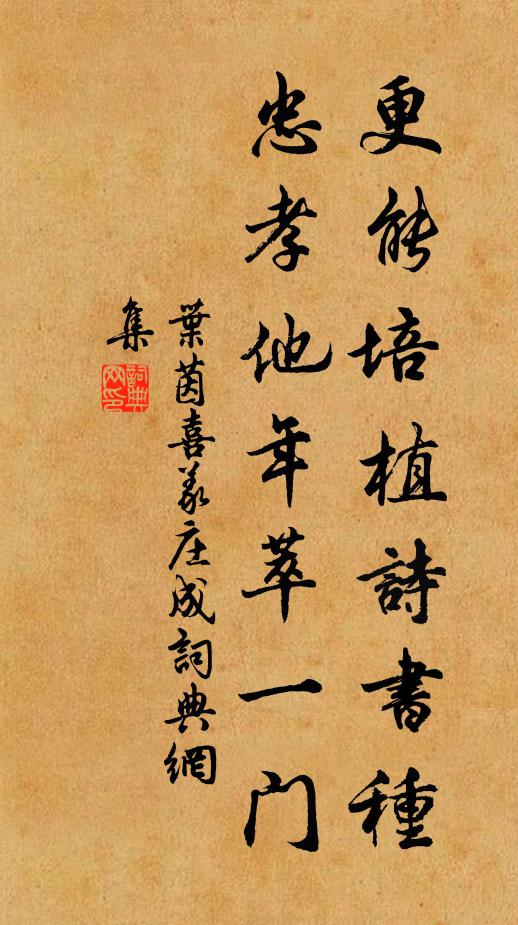 更能培植詩書種
忠孝他年萃一門
葉茵喜義庄成詞典網
集
詞典
网印